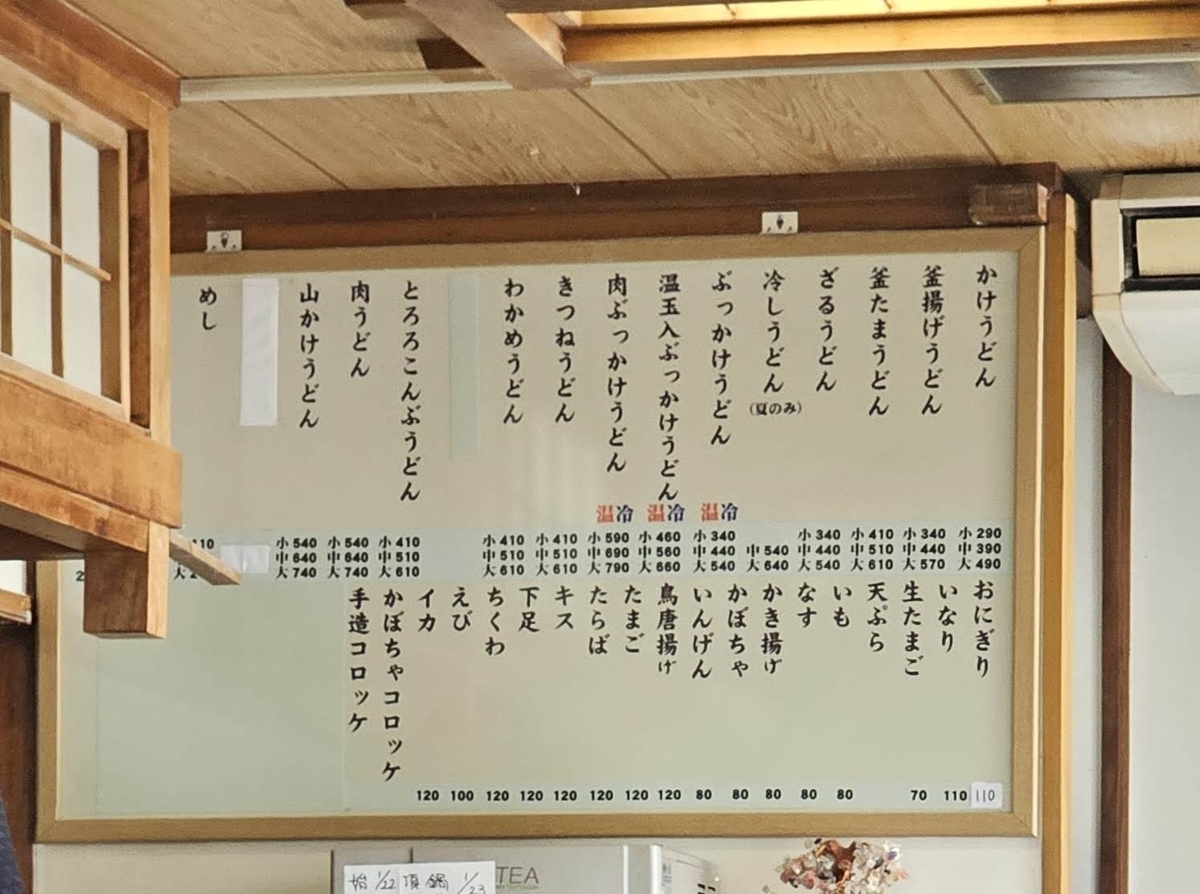 かけうどん
小 290
中 390
大 490
釜揚げうどん
小 340
中 440
大 570
釜たまうどん
小 410
中 510
大 610
ざるうどん
小 340
中 440
大 540
冷しうどん
(夏のみ)
中 540
大 640
ぶっかけうどん
温冷
小 340
中 440
大 540
温玉入ぶっかけうどん
温冷
小 460
中 560
大 660
肉ぶっかけうどん
温冷
小 590
中 690
大 790
きつねうどん
小 410
中 510
大 610
わかめうどん
小 410
中 510
大 610
とろろこんぶうどん
小 410
中 510
大 610
肉うどん
小 540
中 640
大 740
山かけうどん
小 540
中 640
大 740
めし
おにぎり
110
いなり
110
生たまご
70
天ぷら
いも
80
なす
80
かき揚げ
80
かぼちゃ
80
いんげん
80
鳥唐揚げ
120
たまご
120
たらば
120
キス
120
下足
120
ちくわ
120
えび
100
イカ
120
かぼちゃコロッケ
手造コロッケ
TEA